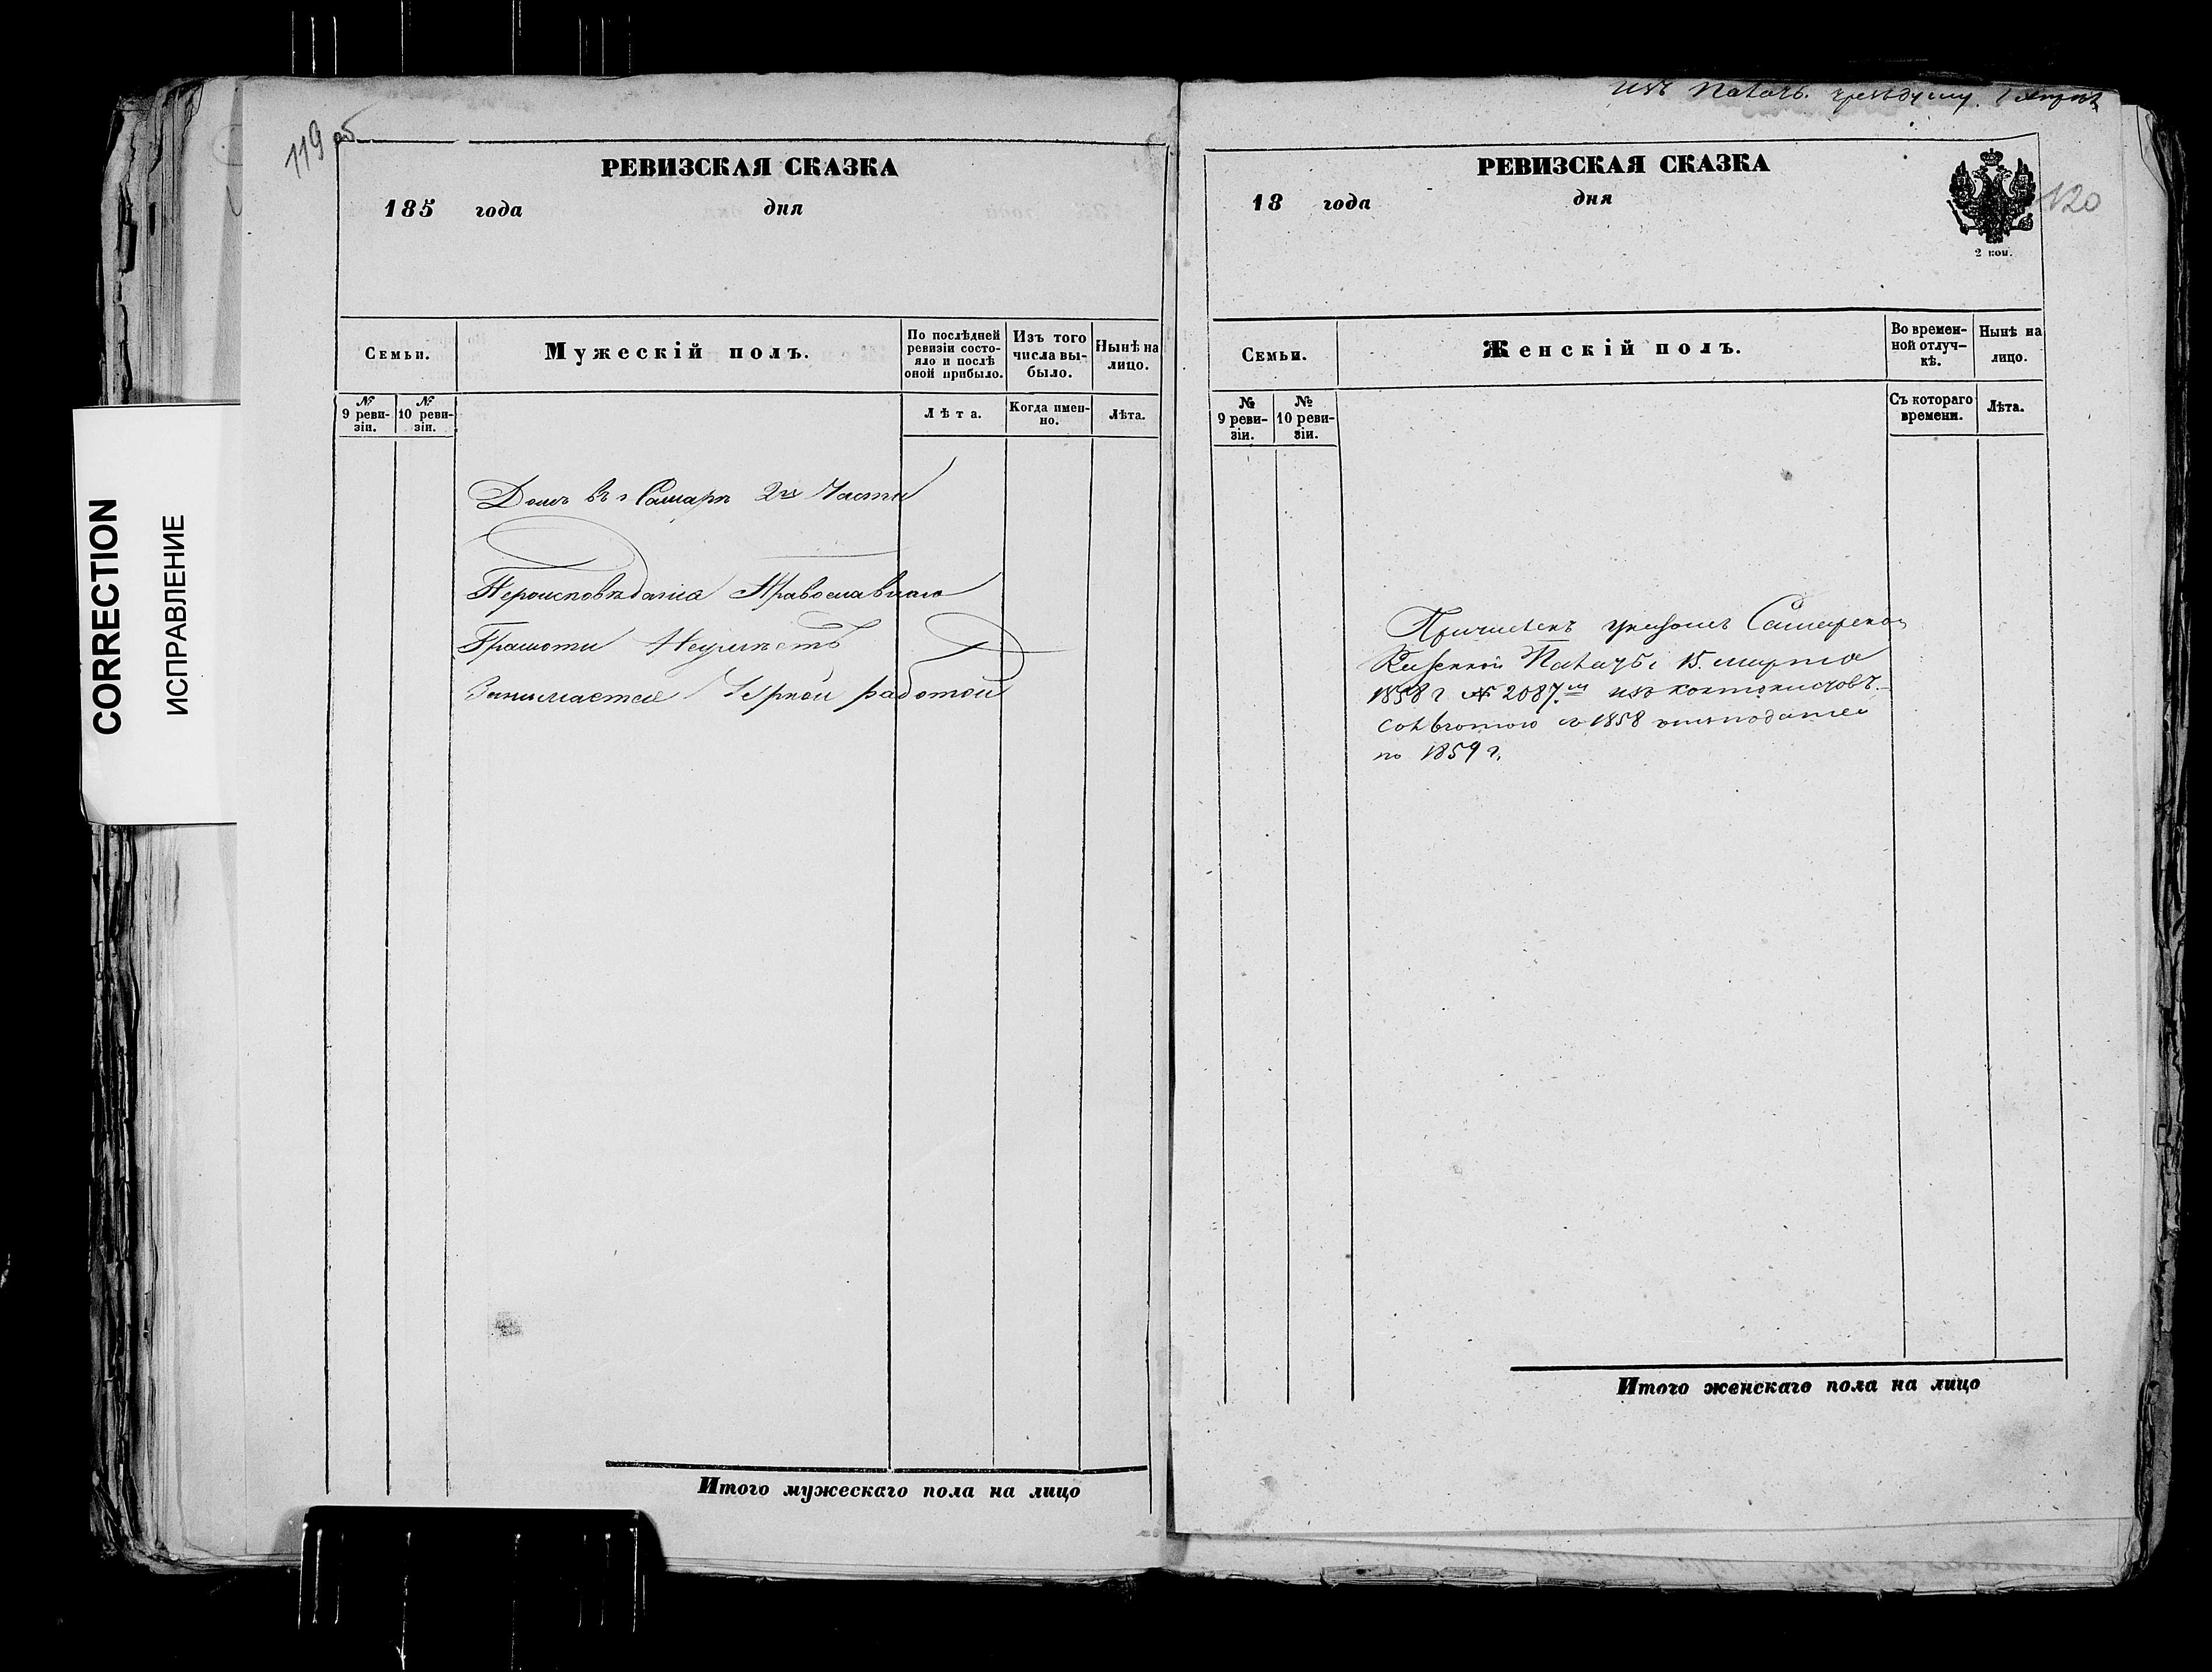 CORRECTION
ИСПРАВЛЕНИЕ
119 об
РЕВИЗСКАЯ СКАЗКА
185 года дня
Семьи.
Мужескій полъ.
По послѣдней ревизіи состо-
яло и послѣ
оной прибыло.
Изъ того
числа вы-
было.
Нынѣ на
лицо.
№ 9 реви-
зіи.
№ 10 реви-
зіи.
Лѣта.
Когда имен-
но.
Лѣта.
Домъ в г Самарѣ 2й Части
Вероисповѣданія Православнаго
Грамоти Неумѣетъ
Занимается Черной работой
Итого мужескаго пола на лицо
изъ Палаты
120
РЕВИЗСКАЯ СКАЗКА
18 года дня
2 коп.
Семьи.
Женскій полъ.
Во времен-
ной отлуч-
кѣ.
Нынѣ на
лицо.
№ 9 реви-
зіи.
№ 10 реви-
зіи.
Съ котораго
времени.
Лѣта.
Причисленъ указомъ Самарской
Казенной Палаты 15 марта
1858 г № 2087 изъ кантонистовъ
съ 1858
по 1859 г.
Итого женскаго пола на лицо